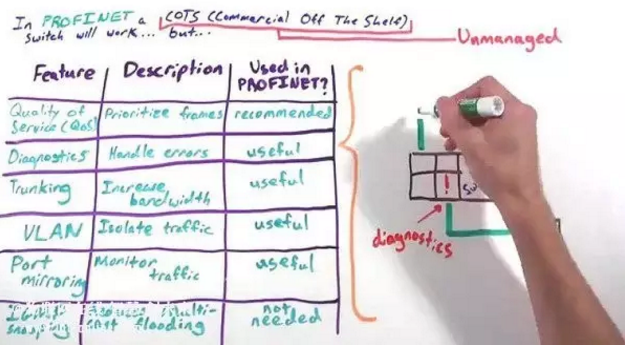 In PROFINET a COTS (Commercial Off The Shelf)
switch will work... but...
Unmanaged
Feature Description Used in PROFINET?
Quality of Service (QoS) Prioritize frames recommended
Diagnostics Handle errors useful
Trunking Increase bandwidth useful
VLAN Isolate traffic useful
Port mirroring Monitor traffic useful
snooping flooding not needed
!
diagnostics